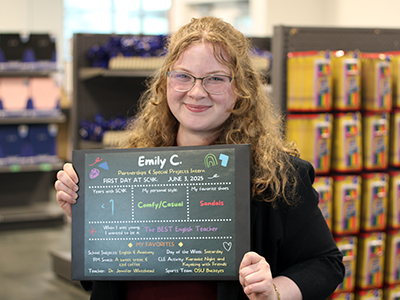 Emily C.
Partnerships & Special Projects Intern
FIRST DAY AT SC4K, JUNE 3, 2025
Years with SC4K:
My personal style:
My favorite shoes:
<1
Comfy/Casual
Sandals
When I was young I wanted to be a
The BEST English Teacher
MY FAVORITES
School Subject: English & Anatomy
Day of the Week: Saturday
PM Snack: A sweet treat & iced coffee
CLE Activity: Karaoke Night and Kayaking with Friends
Teacher: Dr. Jennifer Whitehead
Sports Team: OSU Buckeyes